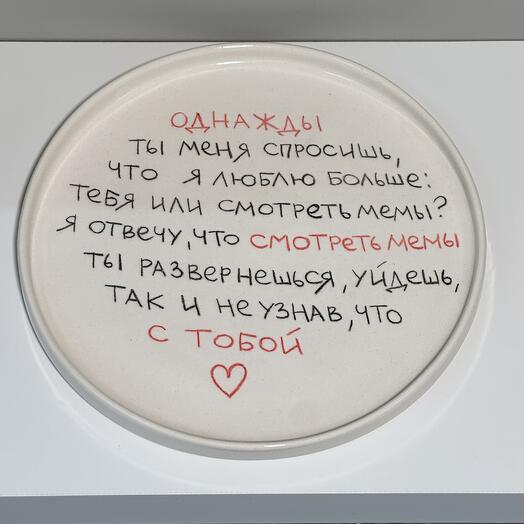 ОДНАЖДЫ
ТЫ МЕНЯ СПРОСИШЬ,
ЧТО Я ЛЮБЛЮ БОЛЬШЕ:
ТЕБЯ ИЛИ СМОТРЕТЬ МЕМЫ?
Я ОТВЕЧУ, ЧТО СМОТРЕТЬ МЕМЫ
ТЫ РАЗВЕРНЕШЬСЯ, УЙДЕШЬ,
ТАК И НЕ УЗНАВ, ЧТО
С ТОБОЙ